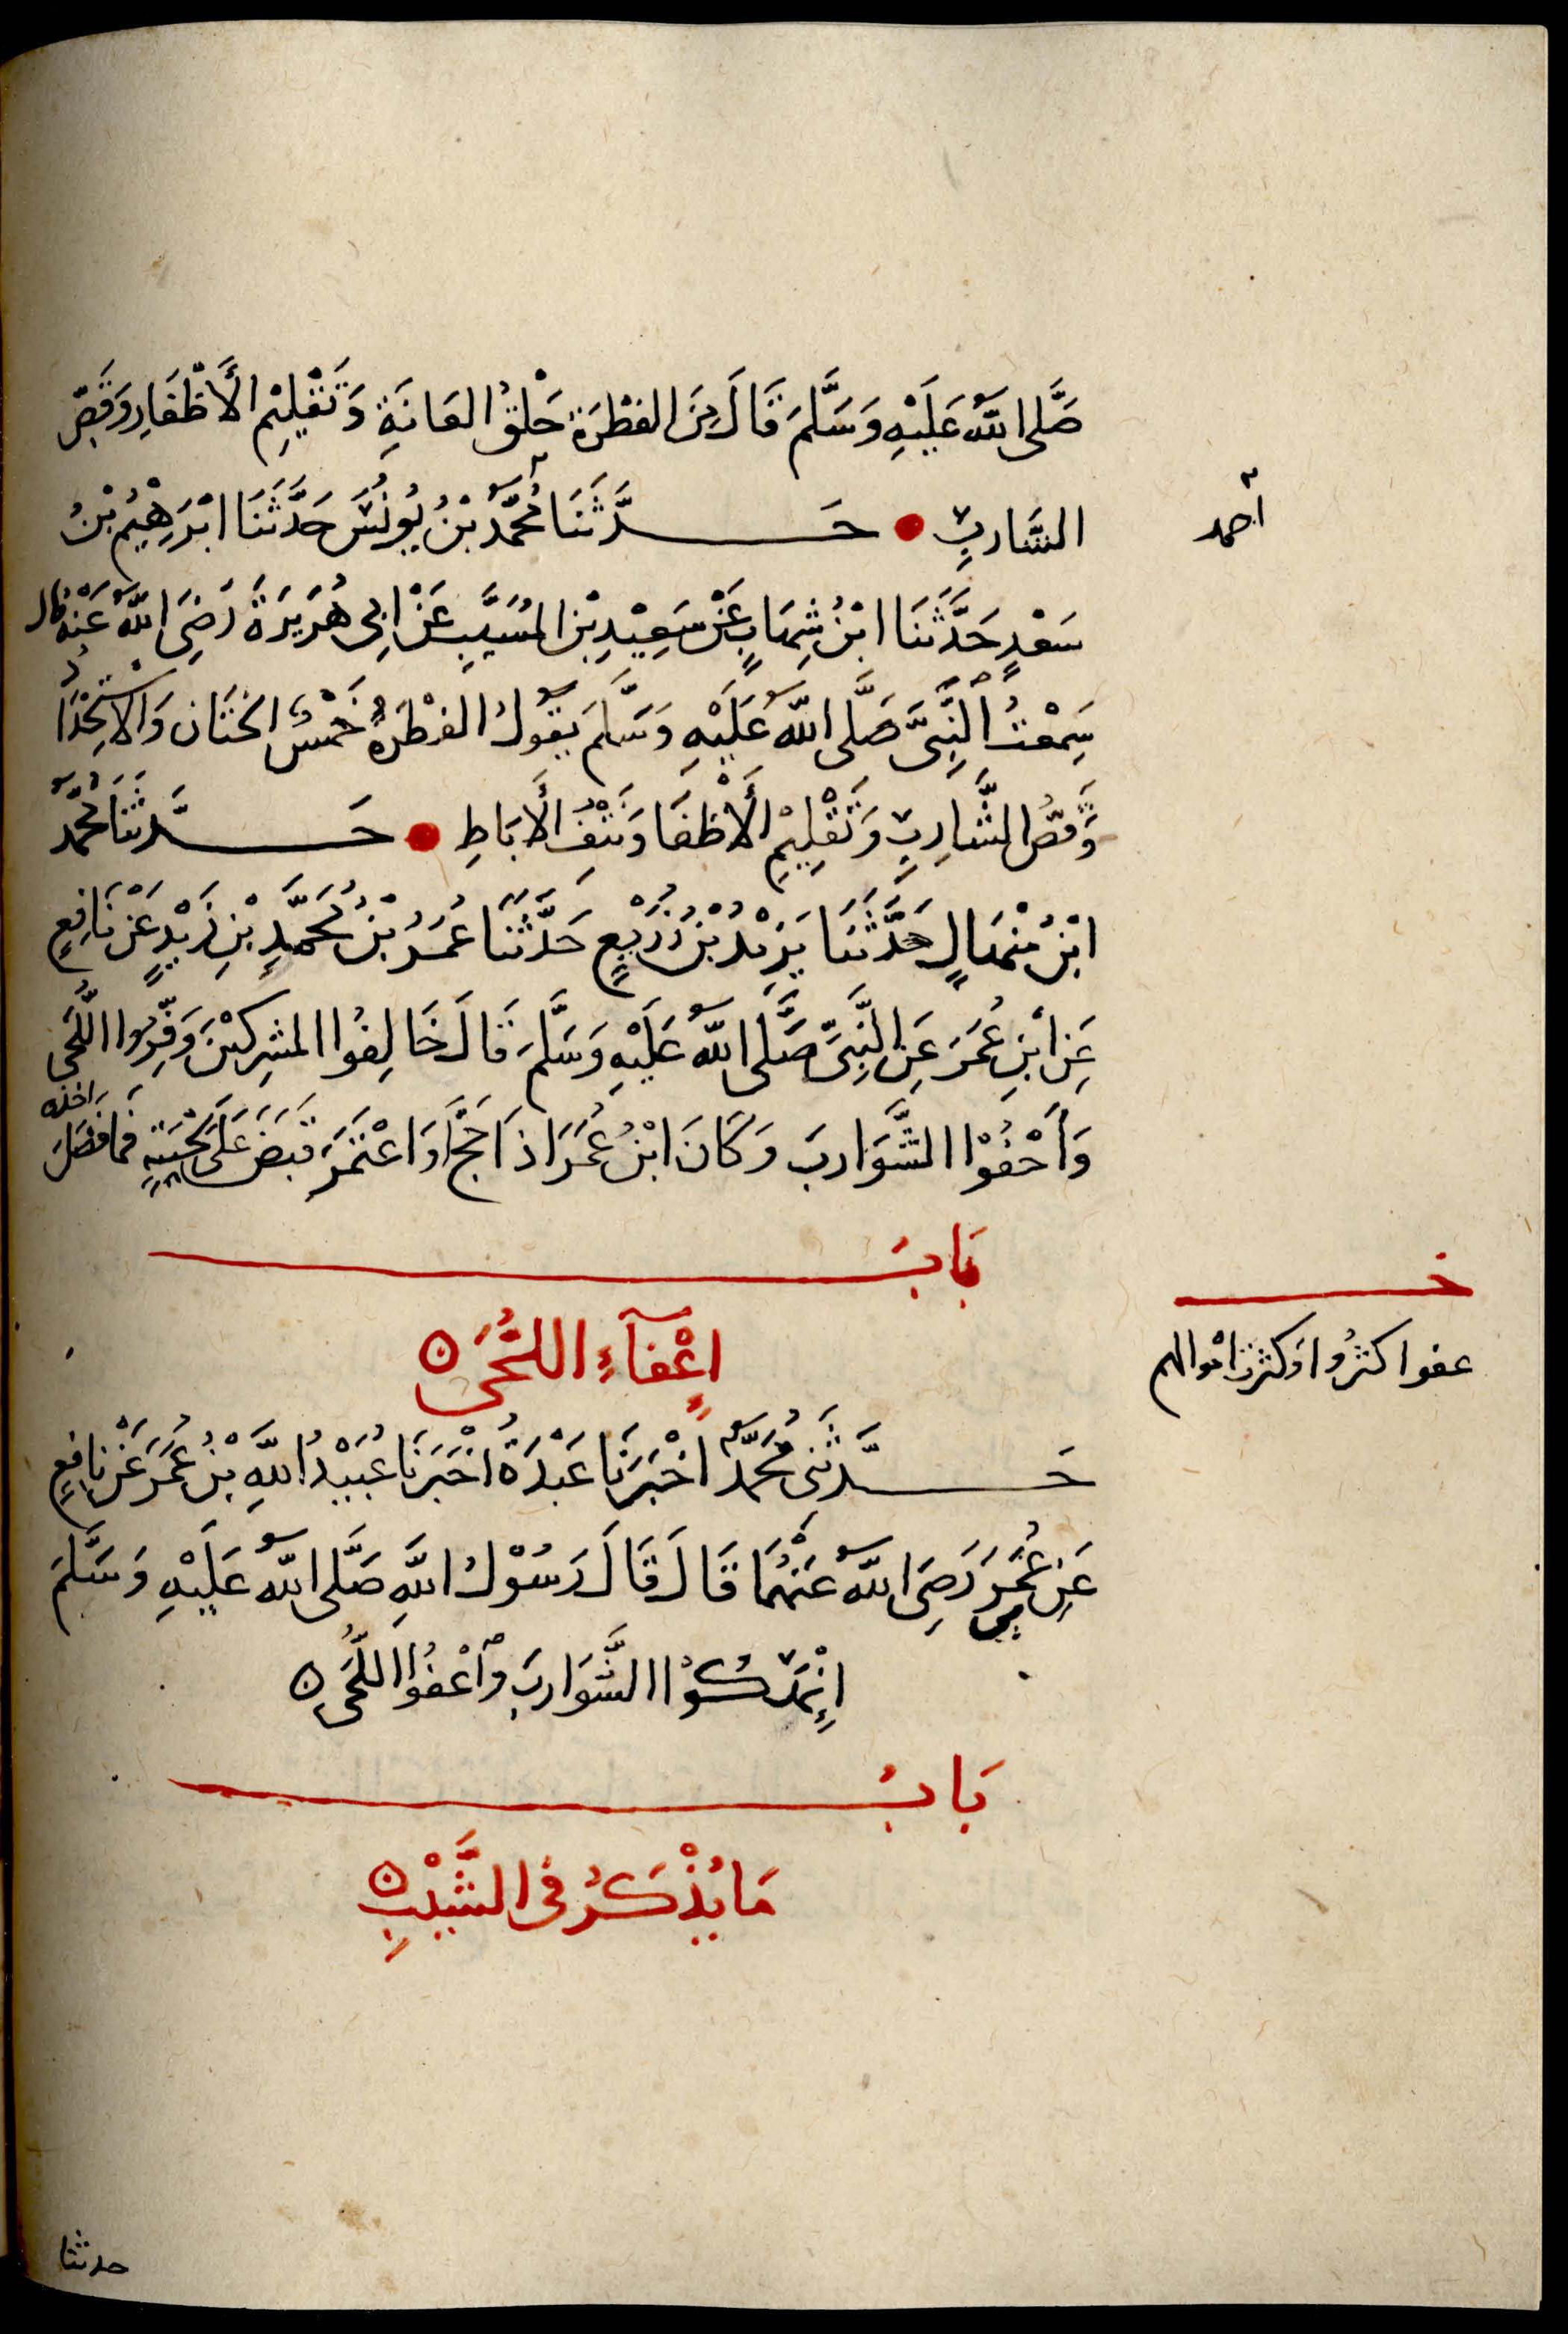 صَلَّى اللّٰهُ عَلَيْهِ وَسَلَّمَ قَالَ مِنَ الفِطْرَةِ حَلْقُ العَانَةِ وَتَقْلِيْمِ الْأَظْفَارِ وَقَصِّ
الشَّارِبِ حَدَّثَنَا مُحَمَّدُ بْنُ يُونُسَ حَدَّثَنَا ابْرَهِيْمُ بْنُ
احمد
سَعْدٍ حَدَّثَنَا ابْنُ شِهَابٍ عَنْ سَعِيْدِ بْنِ المُسَيَّبِ عَنْ ابِى هُرَيرَةَ رَضِىَ اللّٰهُ عَنْهُ قال
سَمِعْتُ النَّبِىَّ صَلَّى اللّٰهُ عَلَيْهِ وَسَلَّمَ يَقُولُ الفِطْرَةُ خَمْسٌ الخِتَان وَالْاسْتِحْدَادُ
وَقَصُّ الشَّارِبِ وَتَقْلِيْمِ الْأَظْفَا وَنَتْفُ الْأبَاطِ حَدَّثَنَا مُحَمَّدُ
ابْنُ مِنْهَالٍ حَدَّثَنَا يَزِيْدُ بْنُ زُرَيْعٍ حَدَّثَنَا عُمَرُ بْنُ مُحَمَّدِ بْنِ زَيْدٍ عَنْ نَافِعٍ
عَنِ ابْنِ عُمَرَ عَنِ النَّبِىِّ صَلَّى اللّٰهُ عَلَيْهِ وَسَلَّمَ قَالَ خَالِفُوا المشرِكِيْنَ وَفِّرُوا اللُّحَى
وَأَحْفُوْا الشَّوَارِبَ وَكَانَ ابْنُ عُمَرَ اذَا حَجَّ أَوَ اعْتَمَرَ قَبَضَ عَلَى لِحْيَتِهِ فَمَا فَضَلَ اخذه
بَابُ
اِعْفَآءِ اللُّحَى
خـ
عفوا كثرُوا وَكثرت اموالهم
حَدَّثَنِى مُحَمَّدٌ اخْبَرَنَا عَبْدَةُ اخْبَرَنَا عُبَيْدُ اللّٰهِ بْنُ عُمَرَ عَنْ نَافِعٍ
عَنِ عُمَرَ رَضِىَ اللّٰهُ عَنْهُمَا قَالَ قَالَ رَسُوْلُ اللّٰهِ صَلَّى اللّٰهُ عَلَيْهِ وَسَلَّمَ
اِنْهَكُوْا الشَّوَارِبَ وَاعْفُوا اللُّحَى
بَابُ
مَا يُذْكَرُ فى الشَّيْبِ
حدثنا